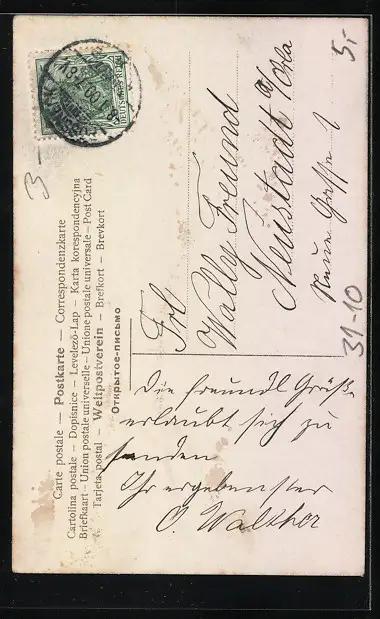 Carte postale — Postkarte — Correspondenzkarte
Cartolina postale — Dopisnice — Levelező-Lap — Karta korespondencyjna
Briefkaart — Union postale universelle — Unione postale universale — Post Card
Tarjeta postal — Weltpostverein — Brefkort — Brevkort
Открытое-письмо
DEUTSCHES REICH
3 –
5,-
31-10
Frl
Wally Freund
Neustadt a/Orla
Neue Gasse 1
Die freundl Grüße
erlaubt sich zu
senden
Ihr ergebenster
O. Walther